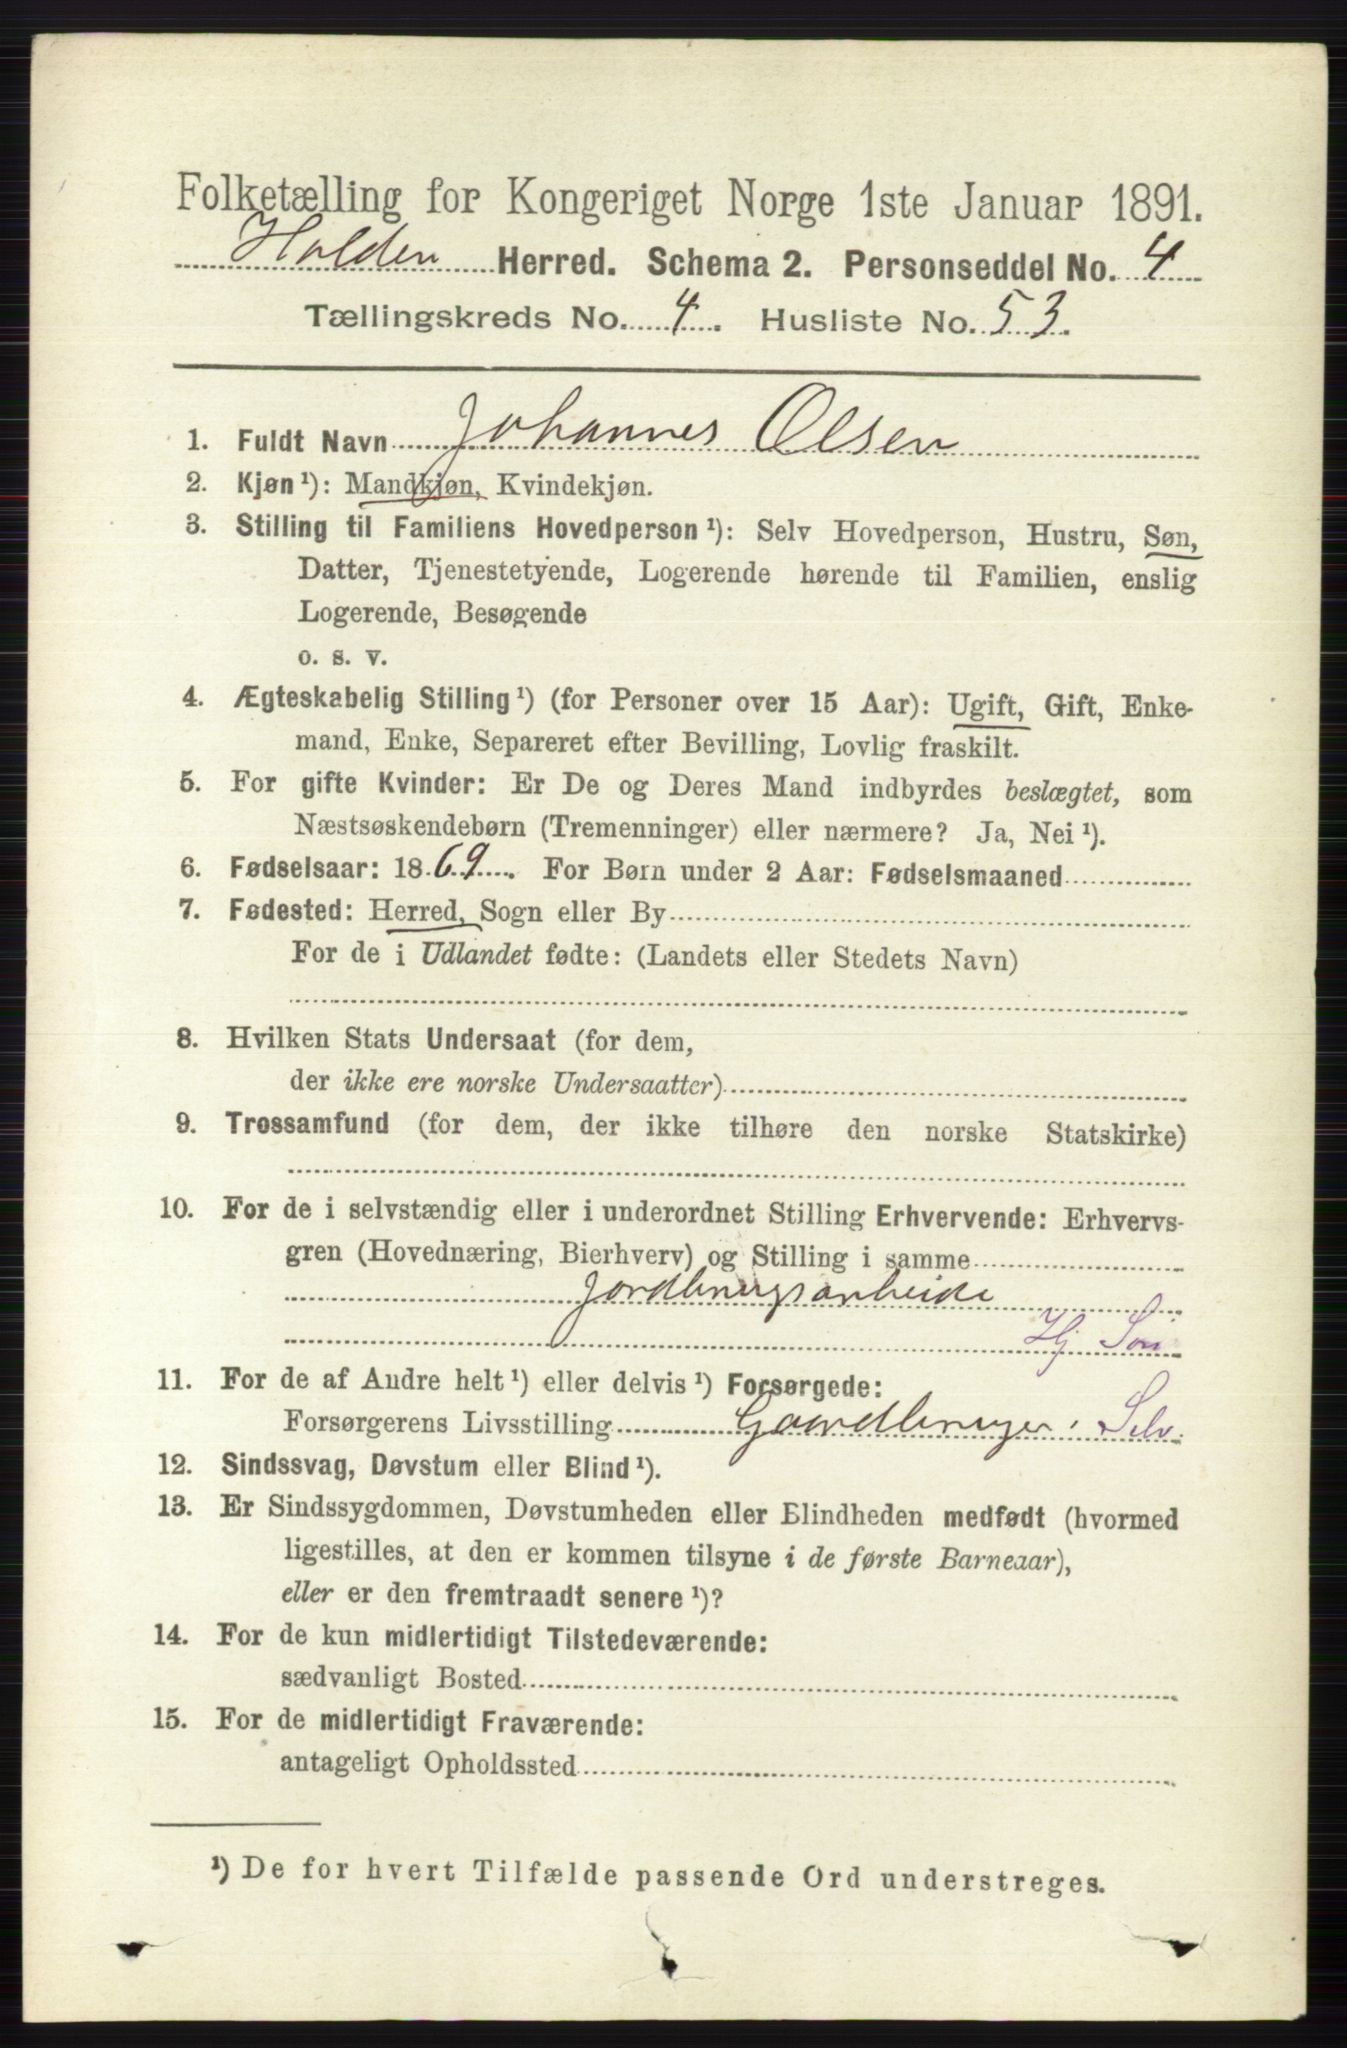 Folketælling for Kongeriget Norge 1ste Januar 1891.
Holden Herred. Schema 2. Personseddel No. 4
Tællingskreds No. 4. Husliste No. 53.
1. Fuldt Navn Johannes Olsen
2. Kjøn ¹): Mandkjøn, Kvindekjøn.
3. Stilling til Familiens Hovedperson ¹): Selv Hovedperson, Hustru, Søn,
Datter, Tjenestetyende, Logerende hørende til Familien, enslig
Logerende, Besøgende
o. s. v.
4. Ægteskabelig Stilling ¹) (for Personer over 15 Aar): Ugift, Gift, Enke-
mand, Enke, Separeret efter Bevilling, Lovlig fraskilt.
5. For gifte Kvinder: Er De og Deres Mand indbyrdes beslægtet, som
Næstsøskendebørn (Tremenninger) eller nærmere? Ja, Nei ¹).
6. Fødselsaar: 1869. For Børn under 2 Aar: Fødselsmaaned
7. Fødested: Herred, Sogn eller By
For de i Udlandet fødte: (Landets eller Stedets Navn)
8. Hvilken Stats Undersaat (for dem,
der ikke ere norske Undersaatter)
9. Trossamfund (for dem, der ikke tilhøre den norske Statskirke)
10. For de i selvstændig eller i underordnet Stilling Erhvervende: Erhvervs-
gren (Hovednæring, Bierhverv) og Stilling i samme
Jordbrugsarbeide
Hj Søn
11. For de af Andre helt ¹) eller delvis ¹) Forsørgede:
Forsørgerens Livsstilling Gaardbruger, Selv.
12. Sindssvag, Døvstum eller Blind ¹).
13. Er Sindssygdommen, Døvstumheden eller Blindheden medfødt (hvormed
ligestilles, at den er kommen tilsyne i de første Barneaar),
eller er den fremtraadt senere ¹)?
14. For de kun midlertidigt Tilstedeværende:
sædvanligt Bosted
15. For de midlertidigt Fraværende:
antageligt Opholdssted
¹) De for hvert Tilfælde passende Ord understreges.